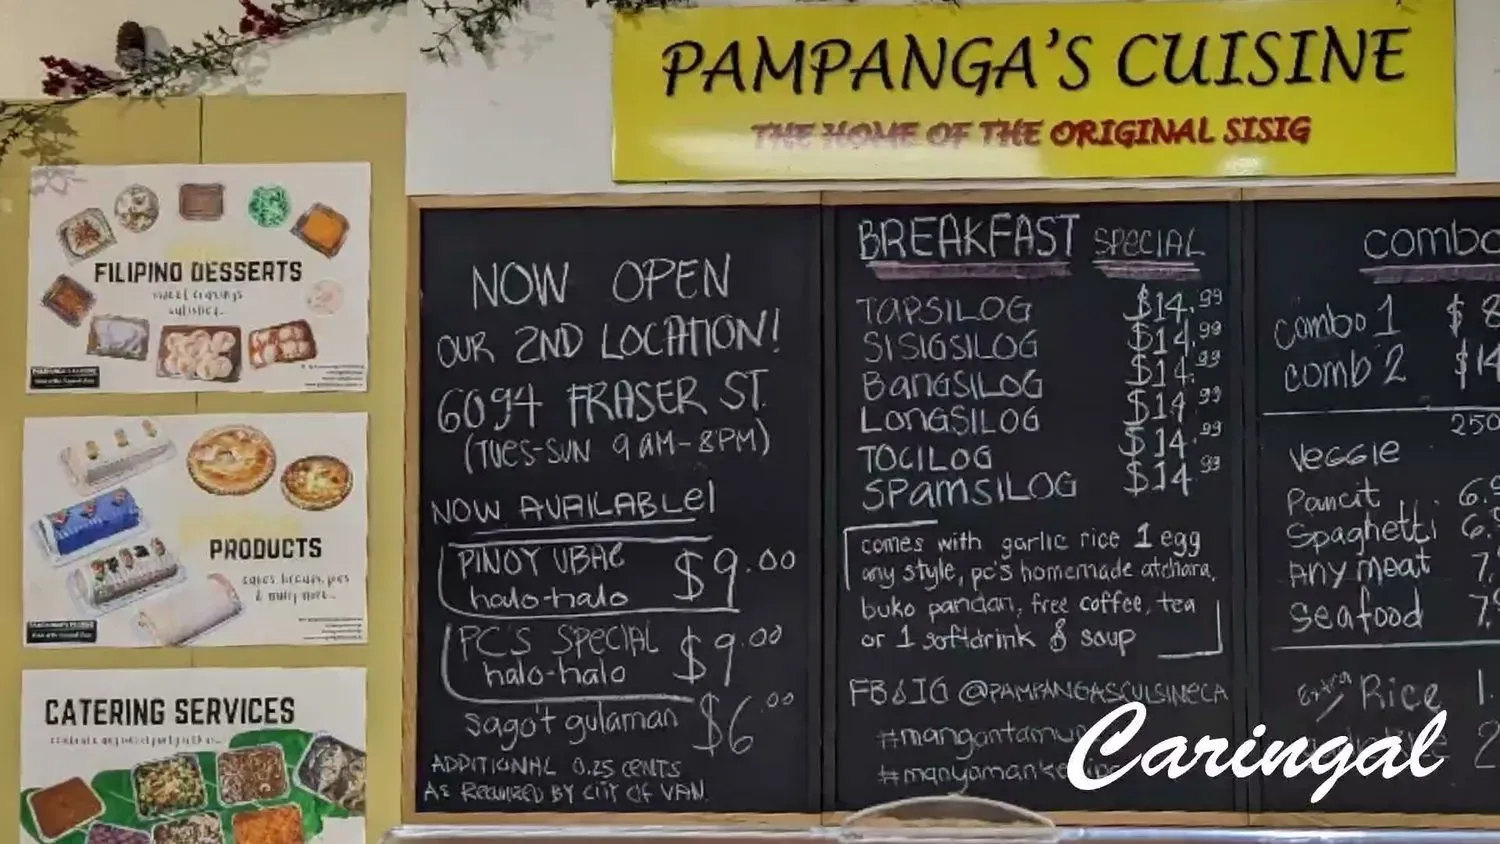 PAMPANGA'S CUISINE
THE HOME OF THE ORIGINAL SISIG
FILIPINO DESSERTS
sweet cravings
satisfied...
PRODUCTS
cakes, breads, pies
& many more...
CATERING SERVICES
NOW OPEN
OUR 2ND LOCATION!
6094 FRASER ST.
(TUES-SUN 9AM-8PM)
NOW AVAILABLE!
PINOY UBAE
halo-halo $9.00
PC'S SPECIAL
halo-halo $9.00
sago't gulaman $6.00
ADDITIONAL 0.25 CENTS
AS REQUIRED BY CITY OF VAN.
BREAKFAST SPECIAL
TAPSILOG $14.99
SISIGSILOG $14.99
BANGSILOG $14.99
LONGSILOG $14.99
TOCILOG $14.99
SPAMSILOG $14.99
comes with garlic rice 1 egg
any style, pc's homemade atchara,
buko pandan, free coffee, tea
or 1 softdrink & soup
FB & IG @PAMPANGASCUISINECA
combo
combo 1 $8
comb 2 $14
250
veggie
Pancit 6.
Spaghetti 6.
Any meat 7.
seafood 7.
Extra Rice 1.
2
Caringal